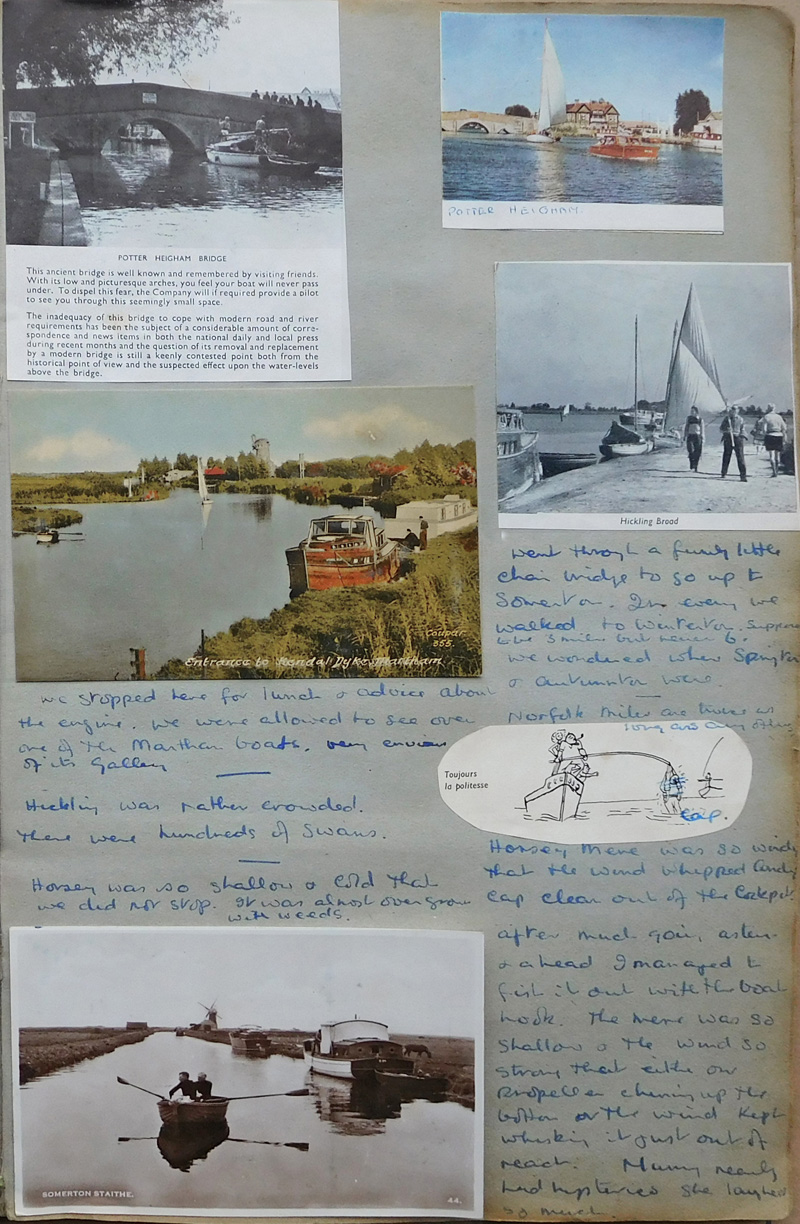 POTTER HEIGHAM BRIDGE
This ancient bridge is well known and remembered by visiting friends.
With its low and picturesque arches, you feel your boat will never pass
under. To dispel this fear, the Company will if required provide a pilot
to see you through this seemingly small space.
The inadequacy of this bridge to cope with modern road and river
requirements has been the subject of a considerable amount of corre-
spondence and news items in both the national daily and local press
during recent months and the question of its removal and replacement
by a modern bridge is still a keenly contested point both from the
historical point of view and the suspected effect upon the water-levels
above the bridge.
POTTER HEIGHAM.
Hickling Broad
Coupar
355.
Entrance to Kendal Dyke, Martham
we stopped here for lunch & advice about
the engine. we were allowed to see over
one of the Martham boats. very envious
of its Galley
Hickling was rather crowded.
There were hundreds of Swans.
Horsey was so shallow & cold that
we did not stop. It was almost overgrown
with weeds.
SOMERTON STAITHE.
44.
went through a funny little
chain bridge to go up to
Somerton. In evening we
walked to Winterton. Suppose
to be 3 miles but nearer 6.
we wondered where Springton
& autumnton were.
Norfolk miles are twice as
long as any other
Toujours
la politesse
Cap.
Horsey Mere was so windy
that the wind whipped Cindy
cap clean out of the Cockpit.
after much going astern
& ahead I managed to
fish it out with the boat
hook. The mere was so
shallow & the wind so
strong that either our
propeller churning up the
bottom or the wind kept
whisking it just out of
reach. Mummy nearly
had hysterics she laughed
so much.